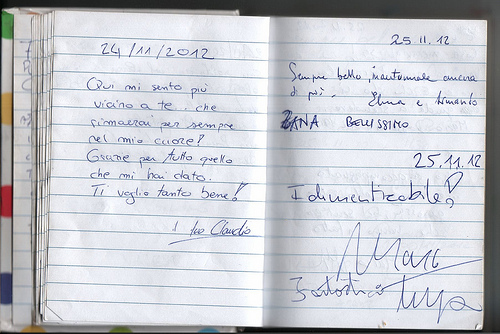 24/11/2012
Qui mi sento più
vicino a te, che
rimarrai per sempre
nel mio cuore!
Grazie per tutto quello
che mi hai dato.
Ti voglio tanto bene!
tuo Claudio
25.11.12
Sempre bello, in autunno ancora
di più. Elena e Armando
ZANA BELLISSIMO
25.11.12
Indimenticabile!